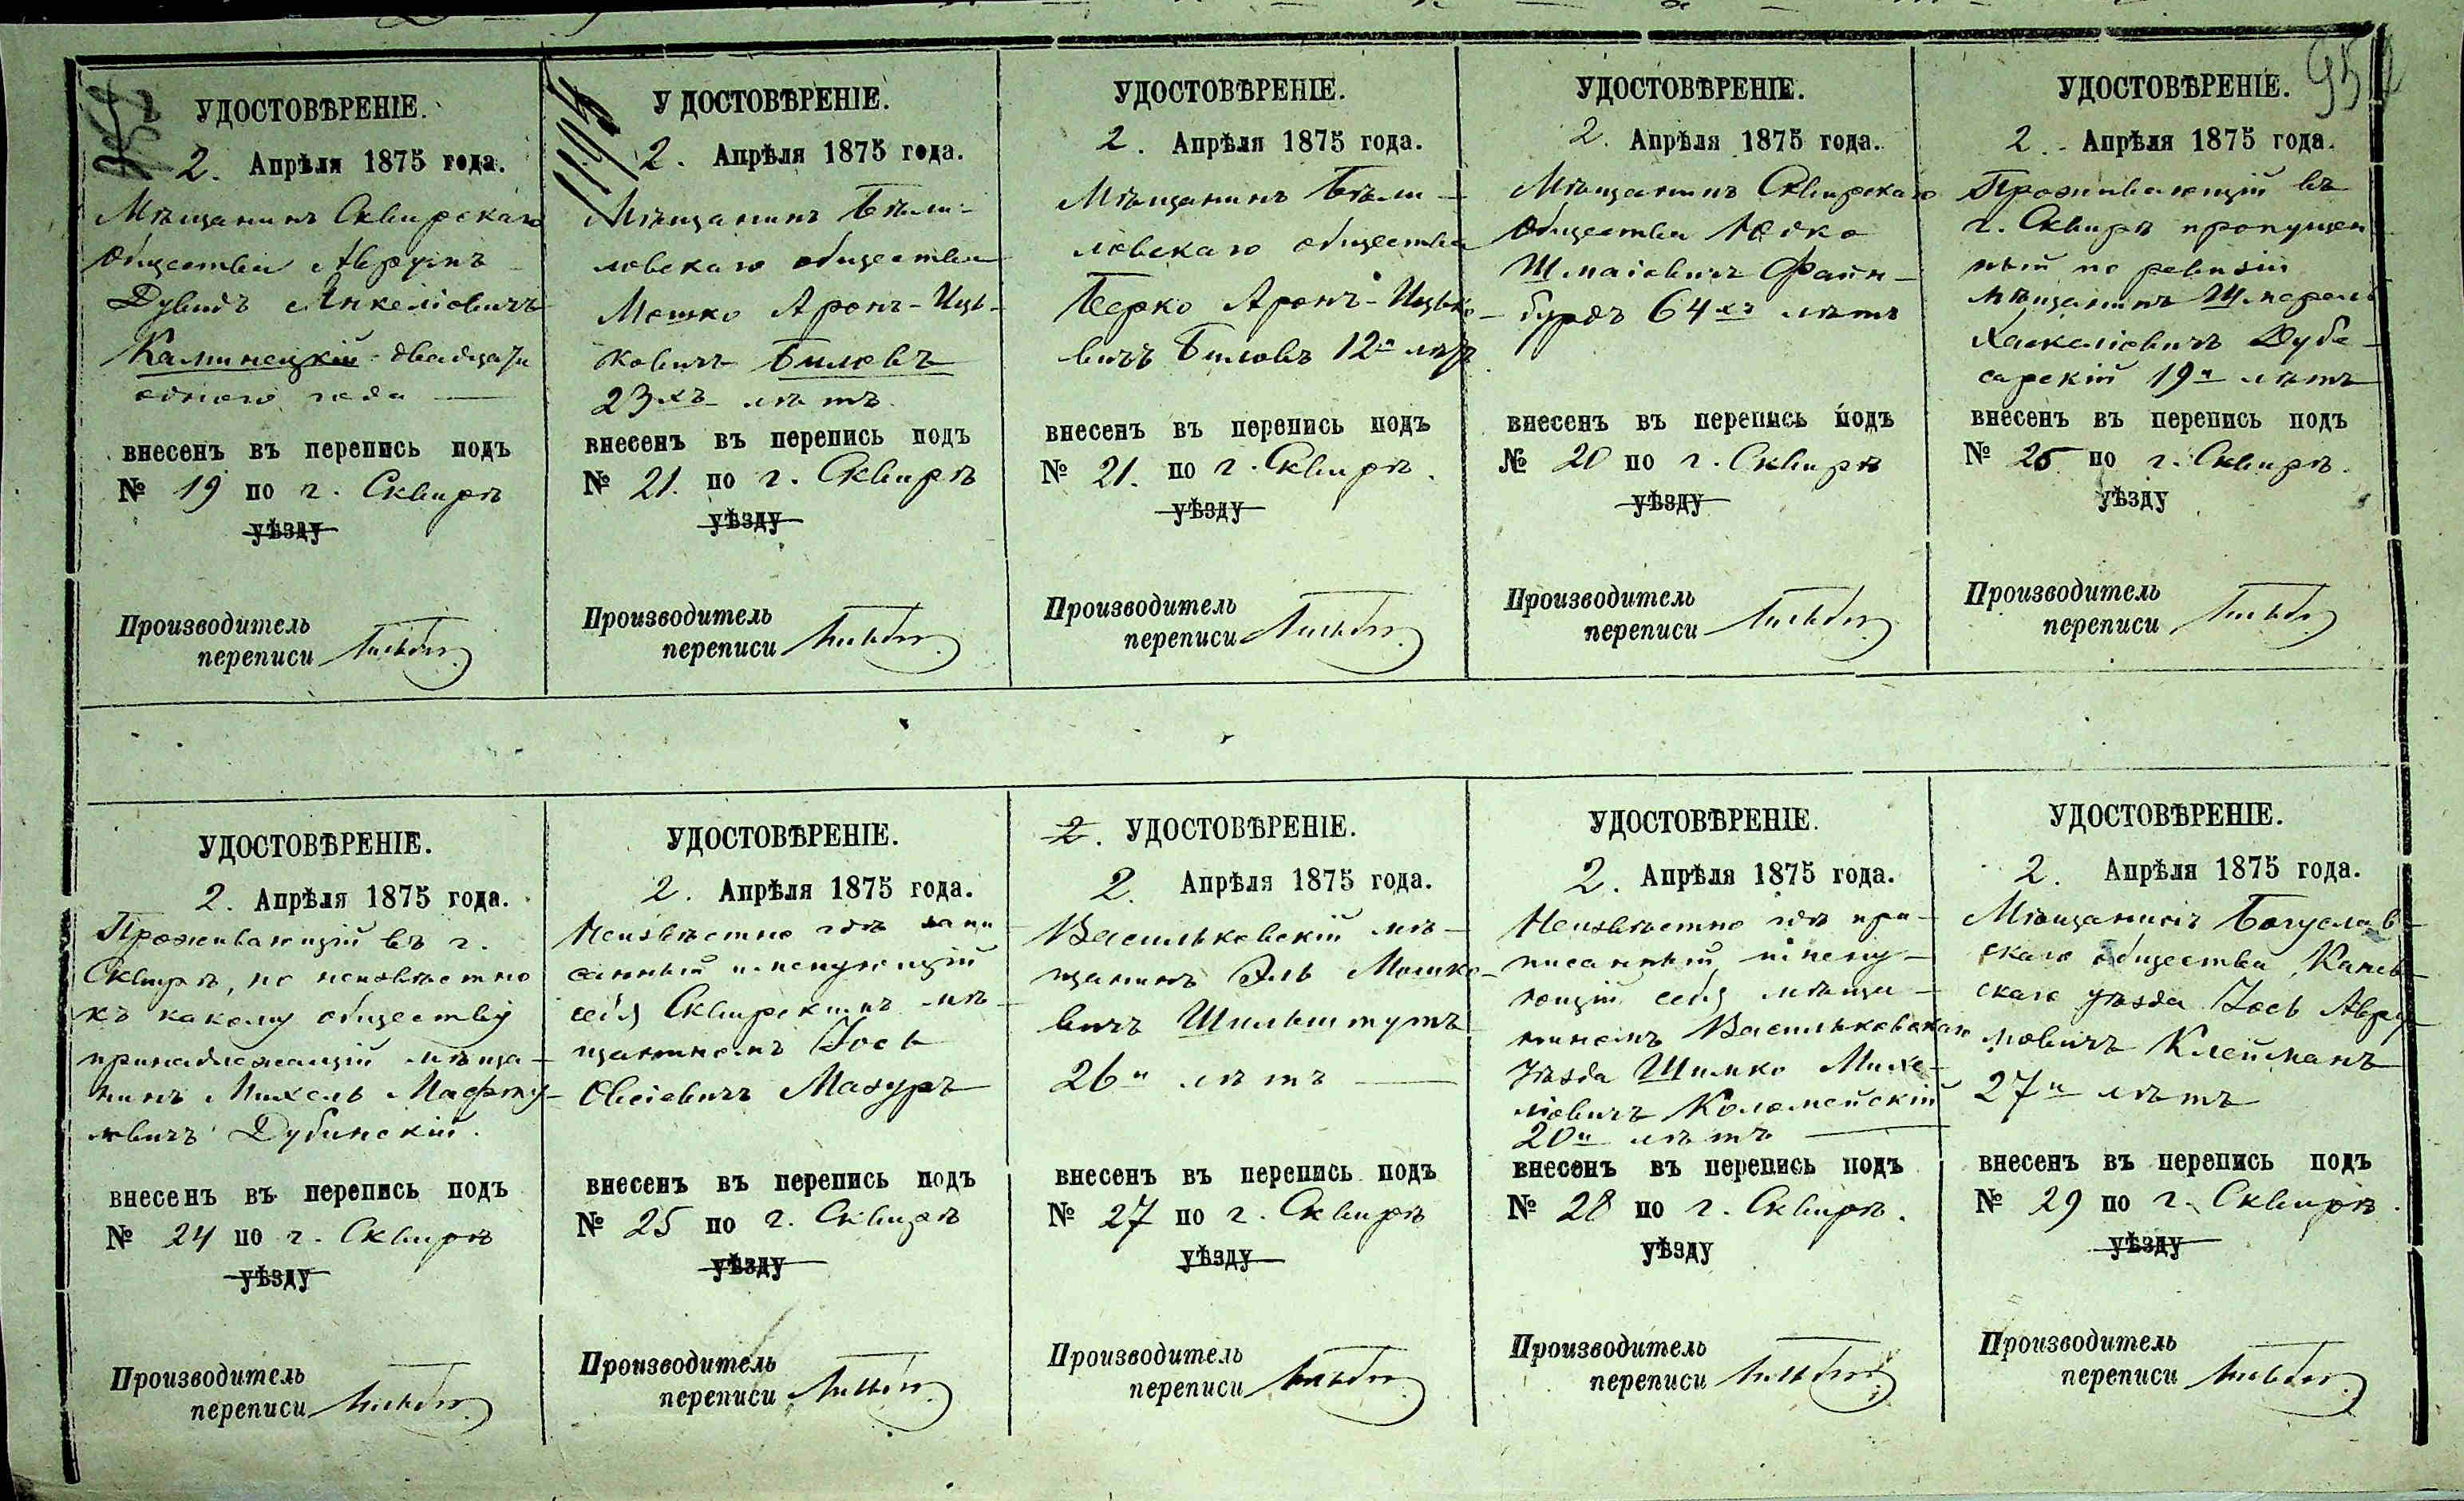 УДОСТОВѢРЕНІЕ.
2. Апрѣля 1875 года.
Мѣщанинъ Сквирскаго
общества Аврумъ
Дувидъ Янкеліовичъ
Каминецкій двадцати
одного года
внесенъ въ перепись подъ
№ 19 по г. Сквирѣ
уѣзду
Производитель
переписи
1194
УДОСТОВѢРЕНІЕ.
2. Апрѣля 1875 года.
Мѣщанинъ Бѣли-
ловскаго общества
Мошко Аронъ-Иць-
ковичъ Биловъ
23хъ лѣтъ
внесенъ въ перепись подъ
№ 21. по г. Сквирѣ
уѣзду
Производитель
переписи
УДОСТОВѢРЕНІЕ.
2. Апрѣля 1875 года.
Мѣщанинъ Бѣли-
ловскаго общества
Берко Аронъ-Ицько-
вичъ Биловъ 12и лѣтъ
внесенъ въ перепись подъ
№ 21. по г. Сквирѣ.
уѣзду
Производитель
переписи
УДОСТОВѢРЕНІЕ.
2. Апрѣля 1875 года.
Мѣщанинъ Сквирскаго
общества Юдко
Шмаіовичъ Файн-
бурдъ 64хъ лѣтъ
внесенъ въ перепись подъ
№ 20 по г. Сквирѣ
уѣзду
Производитель
переписи
95
УДОСТОВѢРЕНІЕ.
2. Апрѣля 1875 года.
Проживающій въ
г. Сквирѣ пропущен
ный по ревизіи
мѣщанинъ Шмерель
Хаскеліовичъ Дубо-
сарскій 19и лѣтъ
внесенъ въ перепись подъ
№ 26 по г. Сквирѣ.
уѣзду
Производитель
переписи
УДОСТОВѢРЕНІЕ.
2. Апрѣля 1875 года.
Проживающій въ г.
Сквирѣ, но неизвѣстно
къ какому обществу
принадлежащій мѣща-
нинъ Михель Нафту-
ловичъ Дубинскій.
внесенъ въ перепись подъ
№ 24 по г. Сквирѣ
уѣзду
Производитель
переписи
УДОСТОВѢРЕНІЕ.
2. Апрѣля 1875 года.
Неизвѣстно гдѣ запи-
санный именующій
себя Сквирскимъ мѣ-
щаниномъ Іось
Овсіевичъ Мазуръ
внесенъ въ перепись подъ
№ 25 по г. Сквирѣ
уѣзду
Производитель
переписи
2. УДОСТОВѢРЕНІЕ.
2. Апрѣля 1875 года.
Васильковскій мѣ-
щанинъ Эль Мошко-
вичъ Шильштутъ
26и лѣтъ
внесенъ въ перепись подъ
№ 27 по г. Сквирѣ
уѣзду
Производитель
переписи
УДОСТОВѢРЕНІЕ.
2. Апрѣля 1875 года.
Неизвѣстно гдѣ при-
писанный имену-
ющій себя мѣща-
ниномъ Васильковскаго
уѣзда Шимко Михе-
ліовичъ Коломейскій
20и лѣтъ
внесенъ въ перепись подъ
№ 28 по г. Сквирѣ.
уѣзду
Производитель
переписи
УДОСТОВѢРЕНІЕ.
2. Апрѣля 1875 года.
Мѣщанинъ Богуслав-
скаго общества Канев-
скаго уѣзда Іось Авру-
мовичъ Клейманъ
27и лѣтъ
внесенъ въ перепись подъ
№ 29 по г. Сквирѣ.
уѣзду
Производитель
переписи